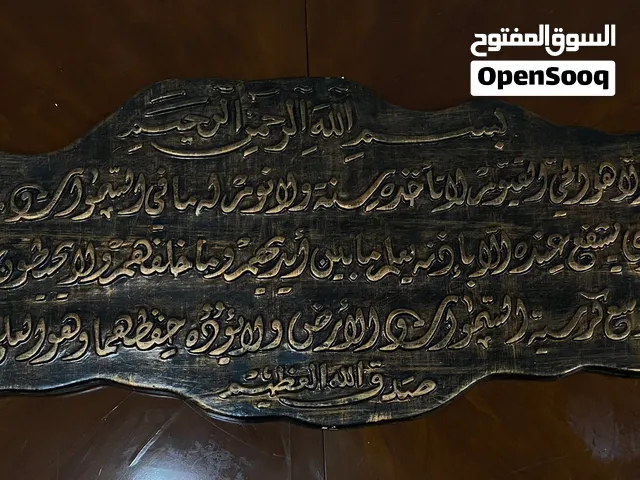 السوق المفتوح
OpenSooq
بسم الله الرحمن الرحيم
لا هو الحي القيوم لا تأخذه سنة ولا نوم له ما في السموات
يشفع عنده الا بإذنه يعلم ما بين أيديهم وما خلفهم ولا يحيطون
كرسيه السموات والأرض ولا يؤوده حفظهما وهو العلي
صدق الله العظيم